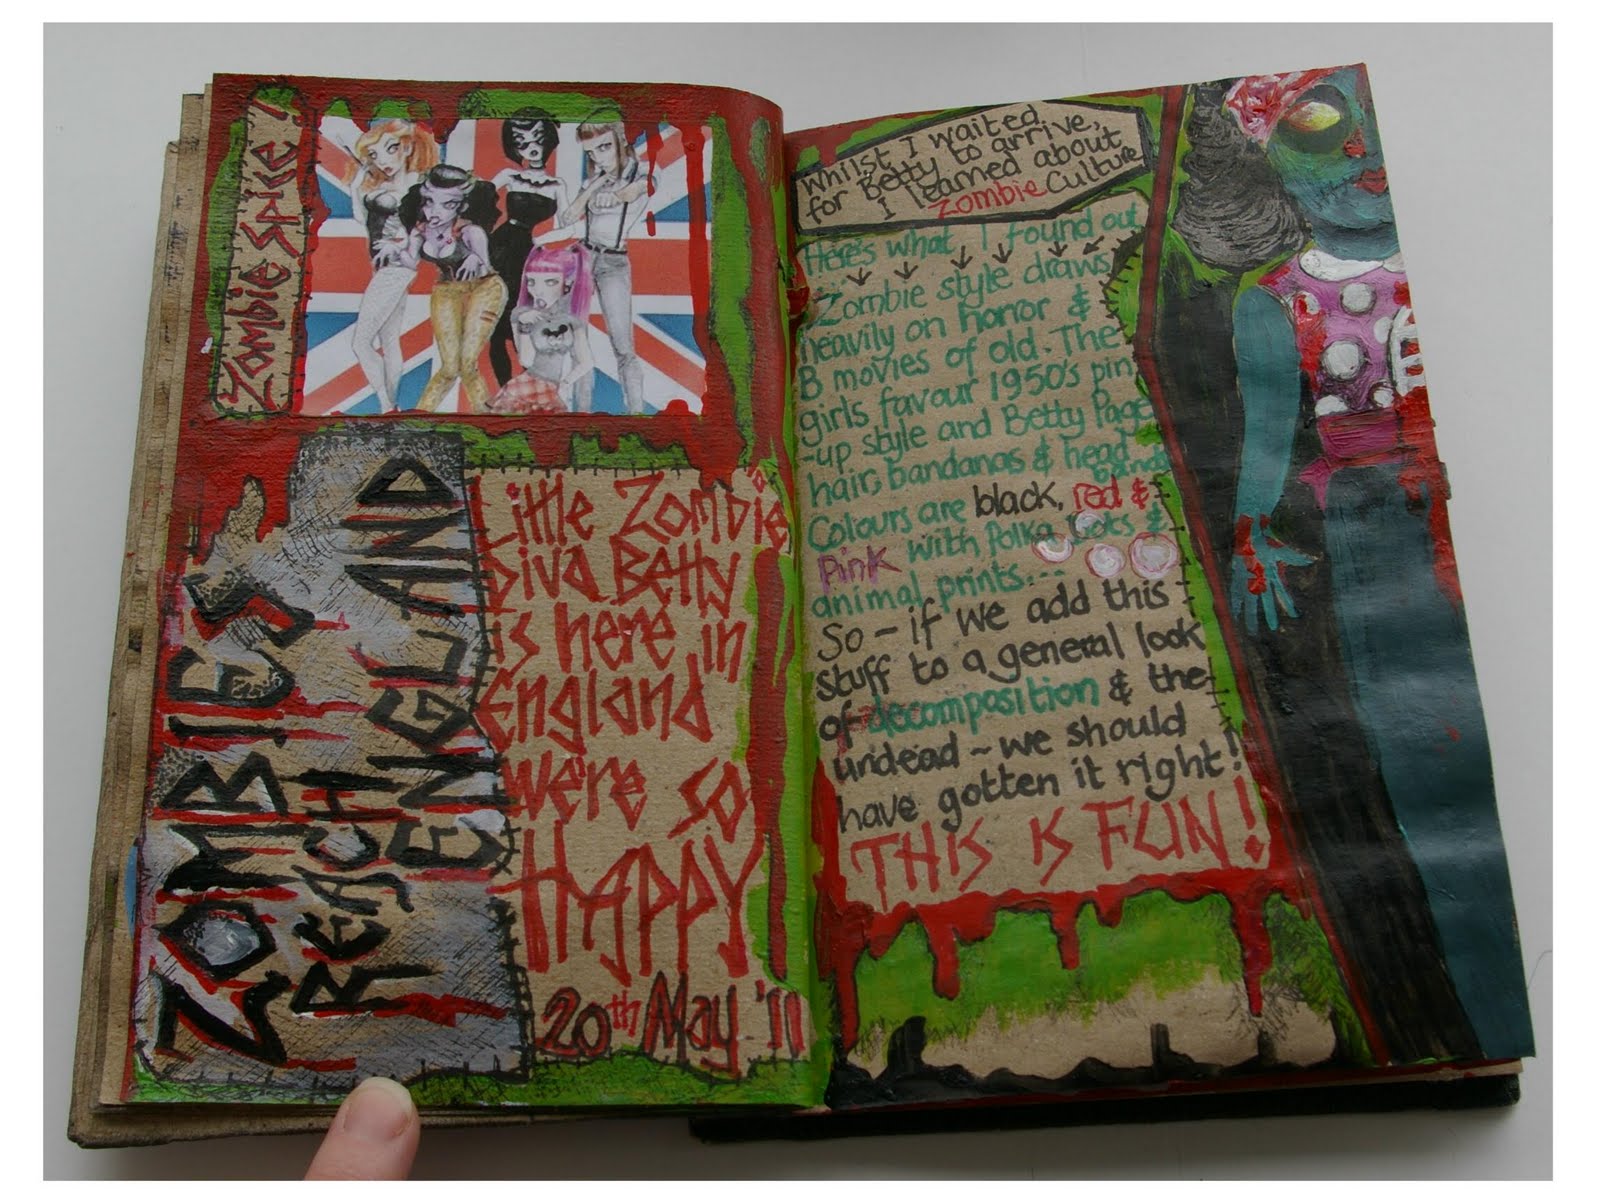 Zombie Spice!
ZOMBIES
REACH
ENGLAND
Little Zombie
Diva Betty
is here in
England
We're so
HAPPY
20th May '11
Whilst I waited
for Betty to arrive,
I learned about
Zombie Culture
Here's what I found out
Zombie style draws
heavily on horror &
B movies of old. The
girls favour 1950's pin
-up style and Betty Page
hair, bandanas & head
bands
Colours are black, red &
Pink with Polka Dots &
animal prints...
So - if we add this
stuff to a general look
of decomposition & the
undead ~ we should
have gotten it right!
THIS IS FUN!